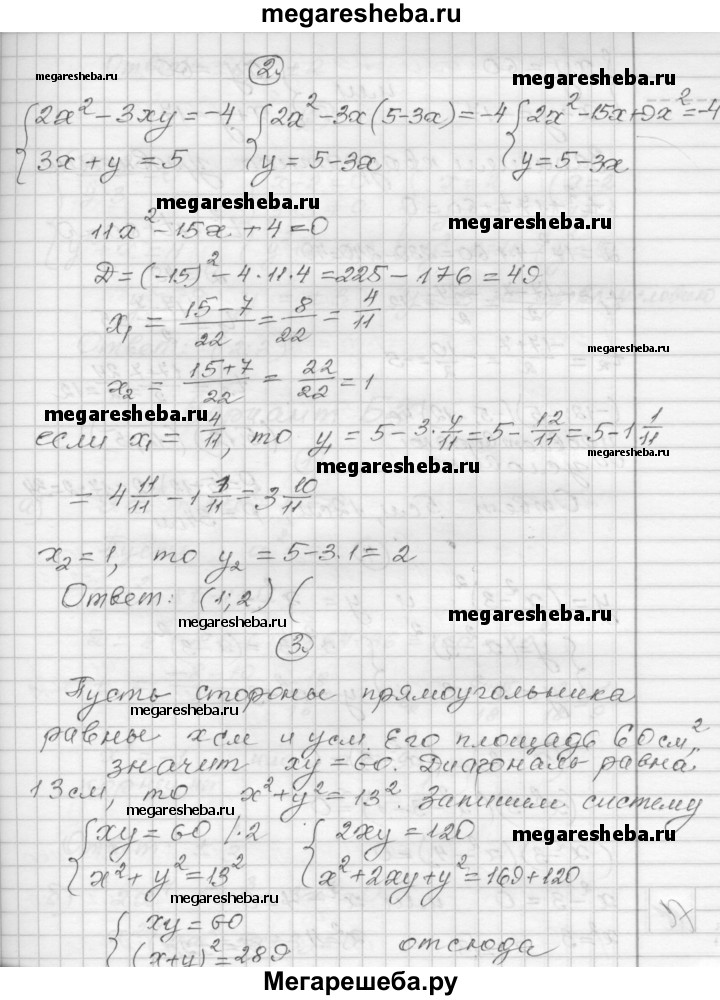 megaresheba.ru
megaresheba.ru
2.
{2x² - 3xy = -4 {2x² - 3x(5-3x) = -4 {2x² - 15x + 9x² = -4
{3x + y = 5 {y = 5-3x {y = 5-3x
megaresheba.ru
megaresheba.ru
11x² - 15x + 4 = 0
D = (-15)² - 4·11·4 = 225 - 176 = 49
x₁ = (15-7)/22 = 8/22 = 4/11
megaresheba.ru
x₂ = (15+7)/22 = 22/22 = 1
megaresheba.ru
если x₁ = 4/11, то y₁ = 5 - 3·4/11 = 5 - 12/11 = 5 - 1 1/11
megaresheba.ru
megaresheba.ru
= 4 11/11 - 1 1/11 = 3 10/11
x₂ = 1, то y₂ = 5-3·1 = 2
Ответ: (1; 2) (
megaresheba.ru
megaresheba.ru
3.
Пусть стороны прямоугольника
megaresheba.ru
равны x см и y см. Его площадь 60 см²,
значит xy = 60. Диагональ равна
13 см, то x² + y² = 13². Запишем систему
megaresheba.ru
{xy = 60 |·2 {2xy = 120
megaresheba.ru
{x² + y² = 13² {x² + 2xy + y² = 169 + 120
megaresheba.ru
{xy = 60
{(x+y)² = 289 отсюда
Мегарешеба.ру